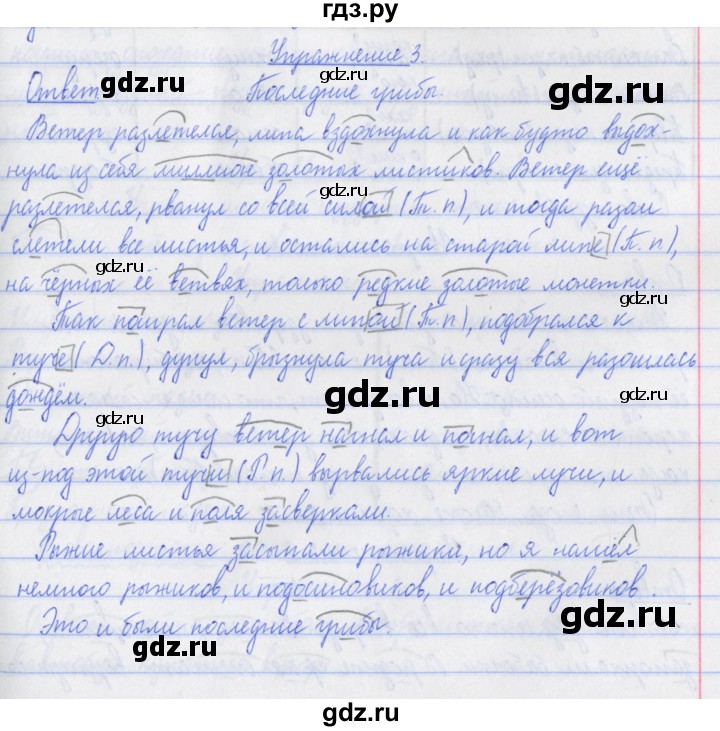 гдз.ру
Упражнение 3.
Ответ gdz.ru Последние грибы. gdz.ru
gdz.ru
Ветер разлетелся, липа вздохнула и как будто выдох-
нула из себя миллион золотых листиков. Ветер ещё
gdz.ru
разлетелся, рванул со всей силой (Т. п), и тогда разом
слетели все листья, и остались на старой липе (П. п),
gdz.ru
на чёрных её ветвях, только редкие золотые монетки.
Так поиграл ветер с липой (Т. п), подобрался к
gdz.ru
туче (Д. п.), дунул, брызнула туча и сразу вся разошлась
дождём. gdz.ru
Другую тучу ветер нагнал и погнал, и вот
gdz.ru
из-под этой тучи (Р. п.) вырвались яркие лучи, и
мокрые леса и поля засверкали.
gdz.ru
Рыжие листья засыпали рыжики, но я нашёл
немного рыжиков, и подосиновиков, и подберёзовиков.
gdz.ru
Это и были последние грибы.
gdz.ru
gdz.ru